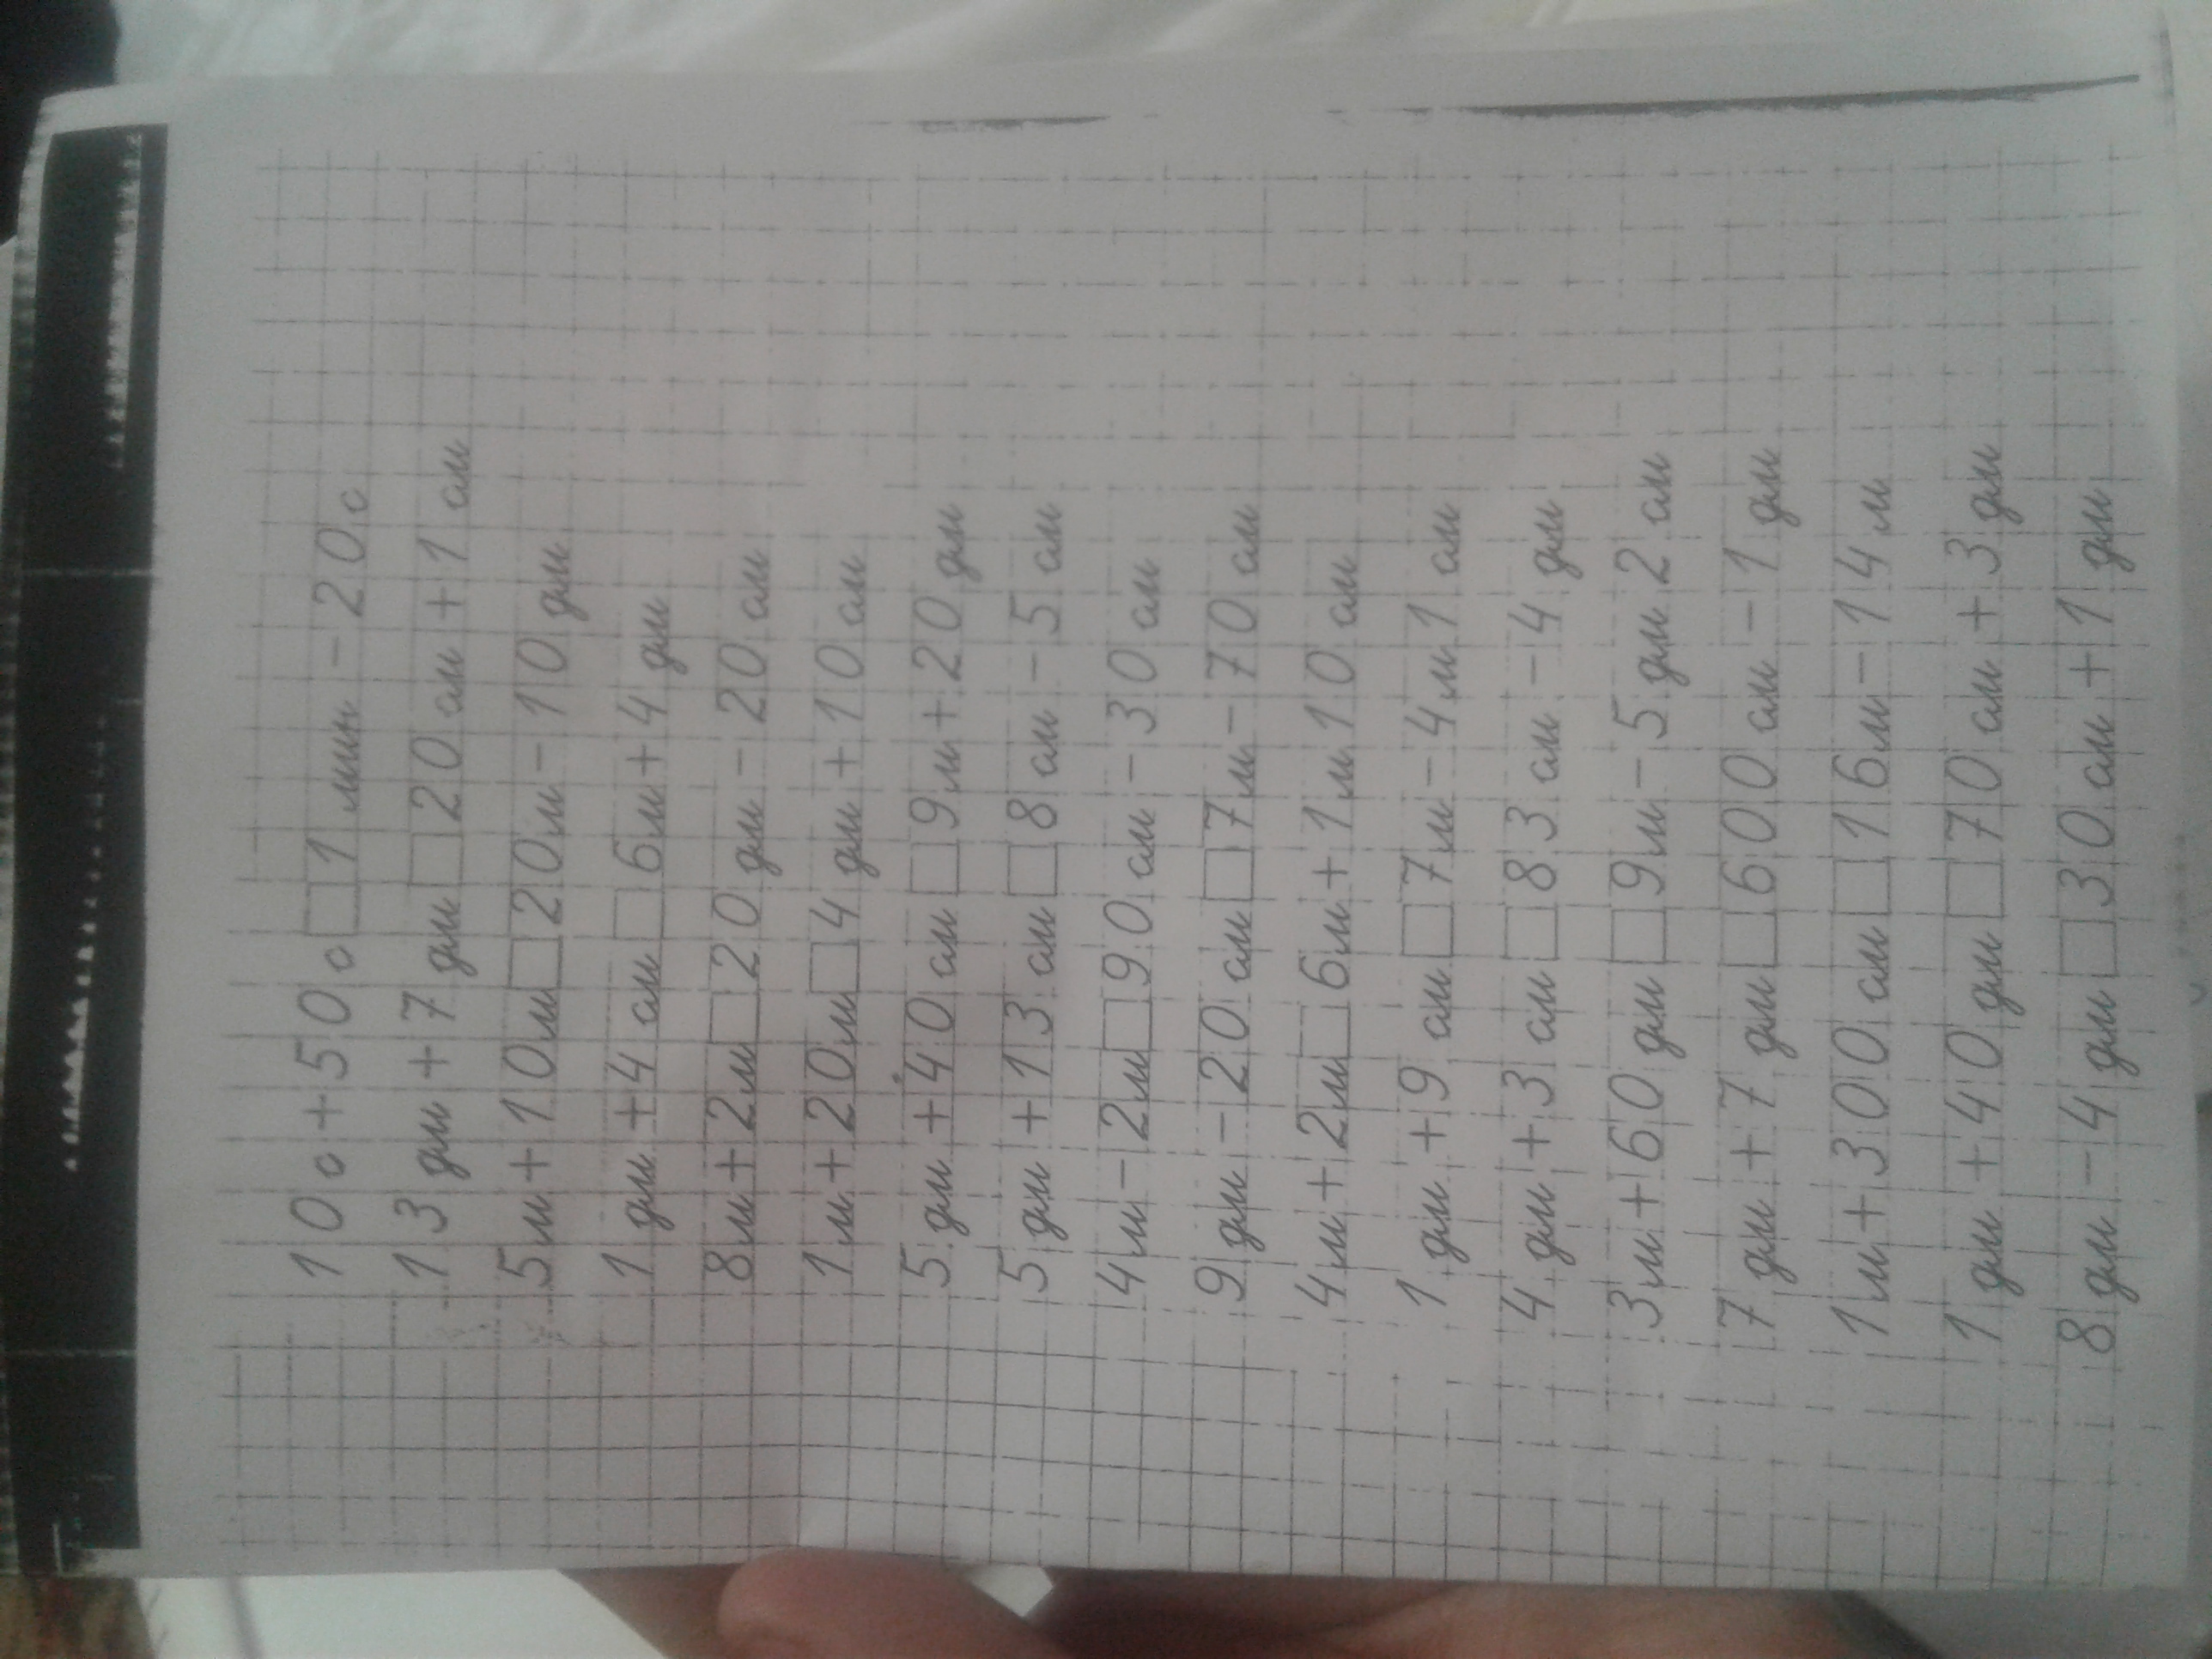 10 с + 50 с □ 1 мин - 20 с
13 дм + 7 дм □ 20 см + 1 см
5 м + 10 м □ 20 м - 10 дм
1 дм + 4 см □ 6 м + 4 дм
8 м + 2 м □ 20 дм - 20 см
1 м + 20 м □ 4 дм + 10 см
5 дм + 40 см □ 9 м + 20 дм
5 дм + 13 см □ 8 см - 5 см
4 м - 2 м □ 90 см - 30 см
9 дм - 20 см □ 7 м - 70 см
4 м + 2 м □ 6 м + 1 м 10 см
1 дм + 9 см □ 7 м - 4 м 1 см
4 дм + 3 см □ 83 см - 4 дм
3 м + 60 дм □ 9 м - 5 дм 2 см
7 дм + 7 дм □ 600 см - 1 дм
1 м + 300 см □ 16 м - 14 м
1 дм + 40 дм □ 70 см + 3 дм
8 дм - 4 дм □ 30 см + 1 дм